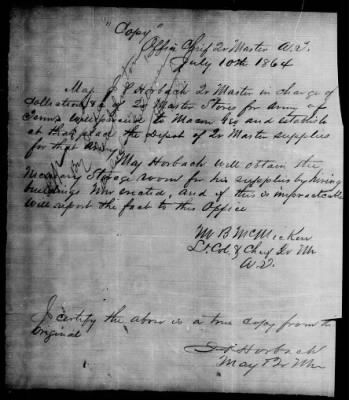 "Copy"
Office Chief Qr Master A.T.
July 10th 1864
Maj Horbach Qr Master in charge of
collection &c of Qr Master Stores for Army of
Tenns will proceed to Macon Ga and establish
at that place the depot of Qr Master supplies
for that Army
Maj Horbach will obtain the
necessary Storage Room for his supplies by hiring
buildings Now erected, and if this is impracticable
will report the fact to this Office
M B McMicken
Lt. Col & Chief Qr Mr
A.T.
I certify the above is a true copy from the
Original
Horbach
Maj & Qr Mr